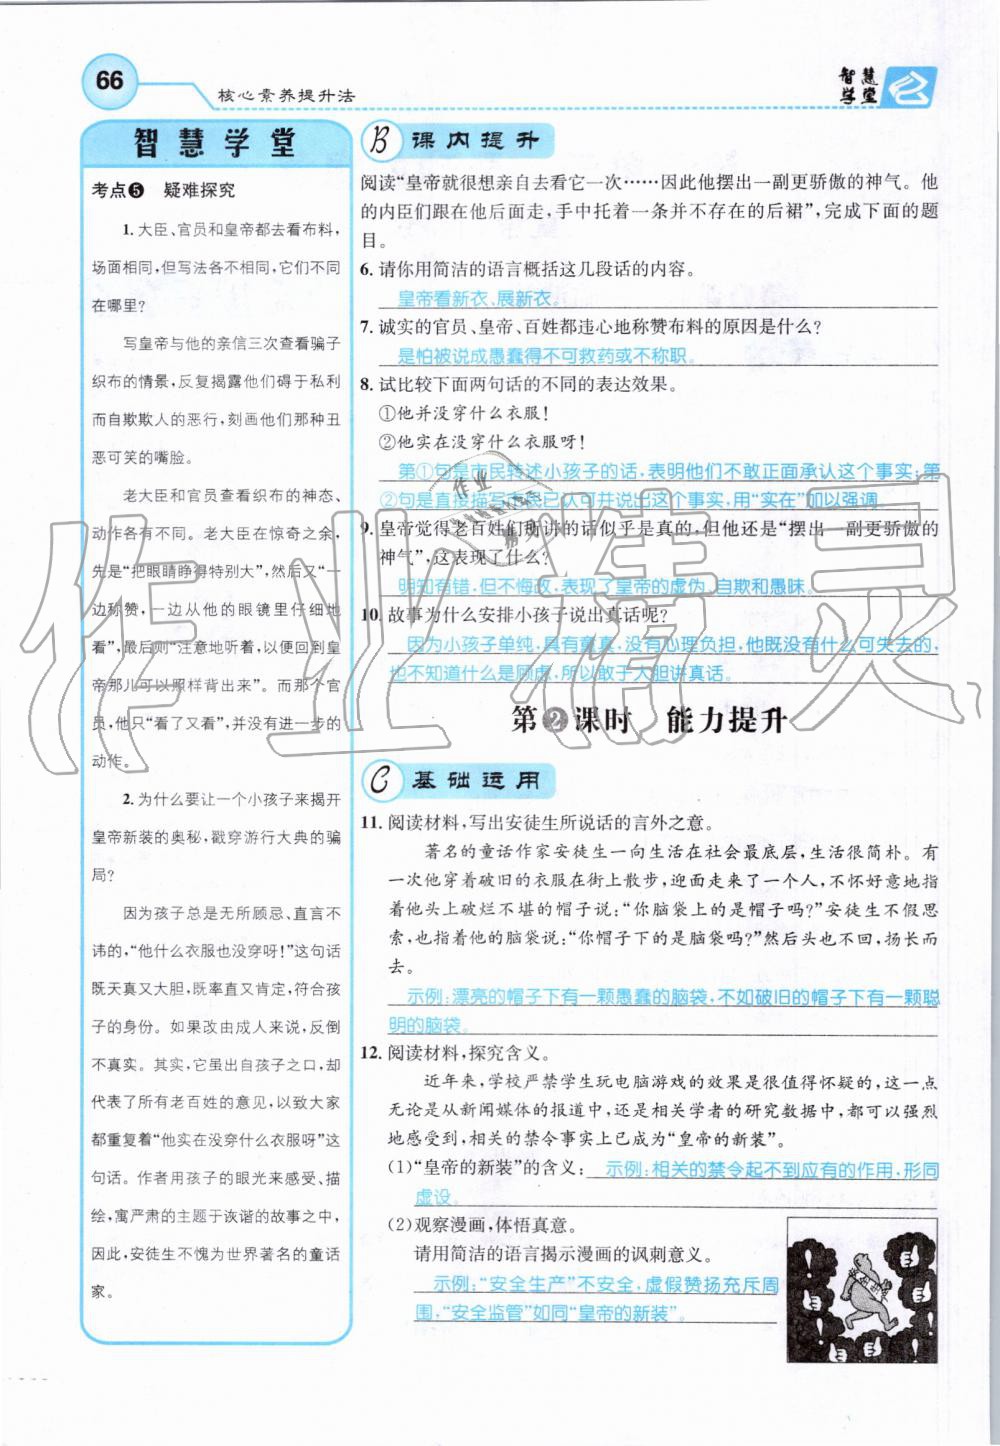 66
核心素养提升法
智慧学堂
智慧学堂
考点5 疑难探究
1.大臣、官员和皇帝都去看布料,
场面相同,但写法各不相同,它们不同
在哪里?
写皇帝与他的亲信三次查看骗子
织布的情景,反复揭露他们碍于私利
而自欺欺人的恶行,刻画他们那种丑
恶可笑的嘴脸。
老大臣和官员查看织布的神态、
动作各有不同。老大臣在惊奇之余,
先是“把眼睛睁得特别大”,然后又“一
边称赞,一边从他的眼镜里仔细地
看”,最后则“注意地听着,以便回到皇
帝那儿可以照样背出来”。而那个官
员,他只“看了又看”,并没有进一步的
动作。
2.为什么要让一个小孩子来揭开
皇帝新装的奥秘,戳穿游行大典的骗
局?
因为孩子总是无所顾忌、直言不
讳的,“他什么衣服也没穿呀!”这句话
既天真又大胆,既率直又肯定,符合孩
子的身份。如果改由成人来说,反倒
不真实。其实,它虽出自孩子之口,却
代表了所有老百姓的意见,以致大家
都重复着“他实在没穿什么衣服呀”这
句话。作者用孩子的眼光来感受、描
绘,寓严肃的主题于诙谐的故事之中,
因此,安徒生不愧为世界著名的童话
家。
B 课内提升
阅读“皇帝就很想亲自去看它一次……因此他摆出一副更骄傲的神气。他
的内臣们跟在他后面走,手中托着一条并不存在的后裙”,完成下面的题
目。
6.请你用简洁的语言概括这几段话的内容。
皇帝看新衣、展新衣。
7.诚实的官员、皇帝、百姓都违心地称赞布料的原因是什么?
是怕被说成愚蠢得不可救药或不称职。
8.试比较下面两句话的不同的表达效果。
①他并没穿什么衣服!
②他实在没穿什么衣服呀!
第①句是市民转述小孩子的话,表明他们不敢正面承认这个事实;第
②句是直接描写市民已认可并说出这个事实,用“实在”加以强调。
9.皇帝觉得老百姓们所讲的话似乎是真的,但他还是“摆出一副更骄傲的
神气”,这表现了什么?
明知有错,但不悔改,表现了皇帝的虚伪、自欺和愚昧。
10.故事为什么安排小孩子说出真话呢?
因为小孩子单纯,具有童真,没有心理负担,他既没有什么可失去的,
也不知道什么是顾虑,所以敢于大胆讲真话。
第2课时 能力提升
C 基础运用
11.阅读材料,写出安徒生所说话的言外之意。
著名的童话作家安徒生一向生活在社会最底层,生活很简朴。有
一次他穿着破旧的衣服在街上散步,迎面走来了一个人,不怀好意地指
着他头上破烂不堪的帽子说:“你脑袋上的是帽子吗?”安徒生不假思
索,也指着他的脑袋说:“你帽子下的是脑袋吗?”然后头也不回,扬长而
去。
示例:漂亮的帽子下有一颗愚蠢的脑袋,不如破旧的帽子下有一颗聪
明的脑袋。
12.阅读材料,探究含义。
近年来,学校严禁学生玩电脑游戏的效果是很值得怀疑的,这一点
无论是从新闻媒体的报道中,还是相关学者的研究数据中,都可以强烈
地感受到,相关的禁令事实上已成为“皇帝的新装”。
(1)“皇帝的新装”的含义: 示例:相关的禁令起不到应有的作用,形同
虚设。
(2)观察漫画,体悟真意。
请用简洁的语言揭示漫画的讽刺意义。
示例:“安全生产”不安全,虚假赞扬充斥周
围,“安全监管”如同“皇帝的新装”。
作业精灵